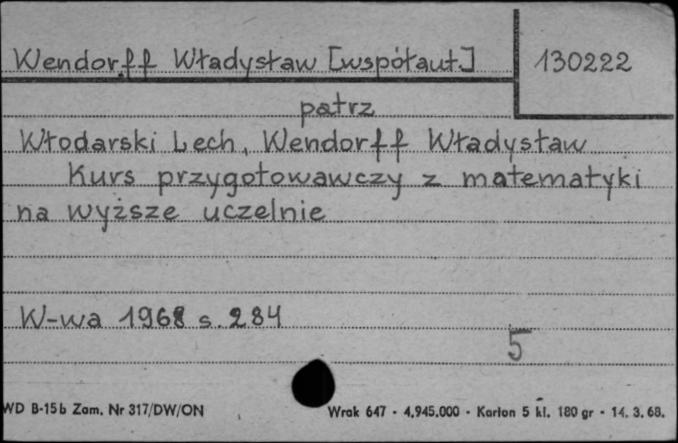 Wendorff Władysław [współaut.] 130222
patrz
Włodarski Lech, Wendorff Władysław
Kurs przygotowawczy z matematyki
na wyższe uczelnie
W-wa 1968 s. 284
5
WD B-15b Zam. Nr 317/DW/ON Wrak 647 - 4.945.000 - Karton 5 kl. 180 gr - 14. 3. 68.